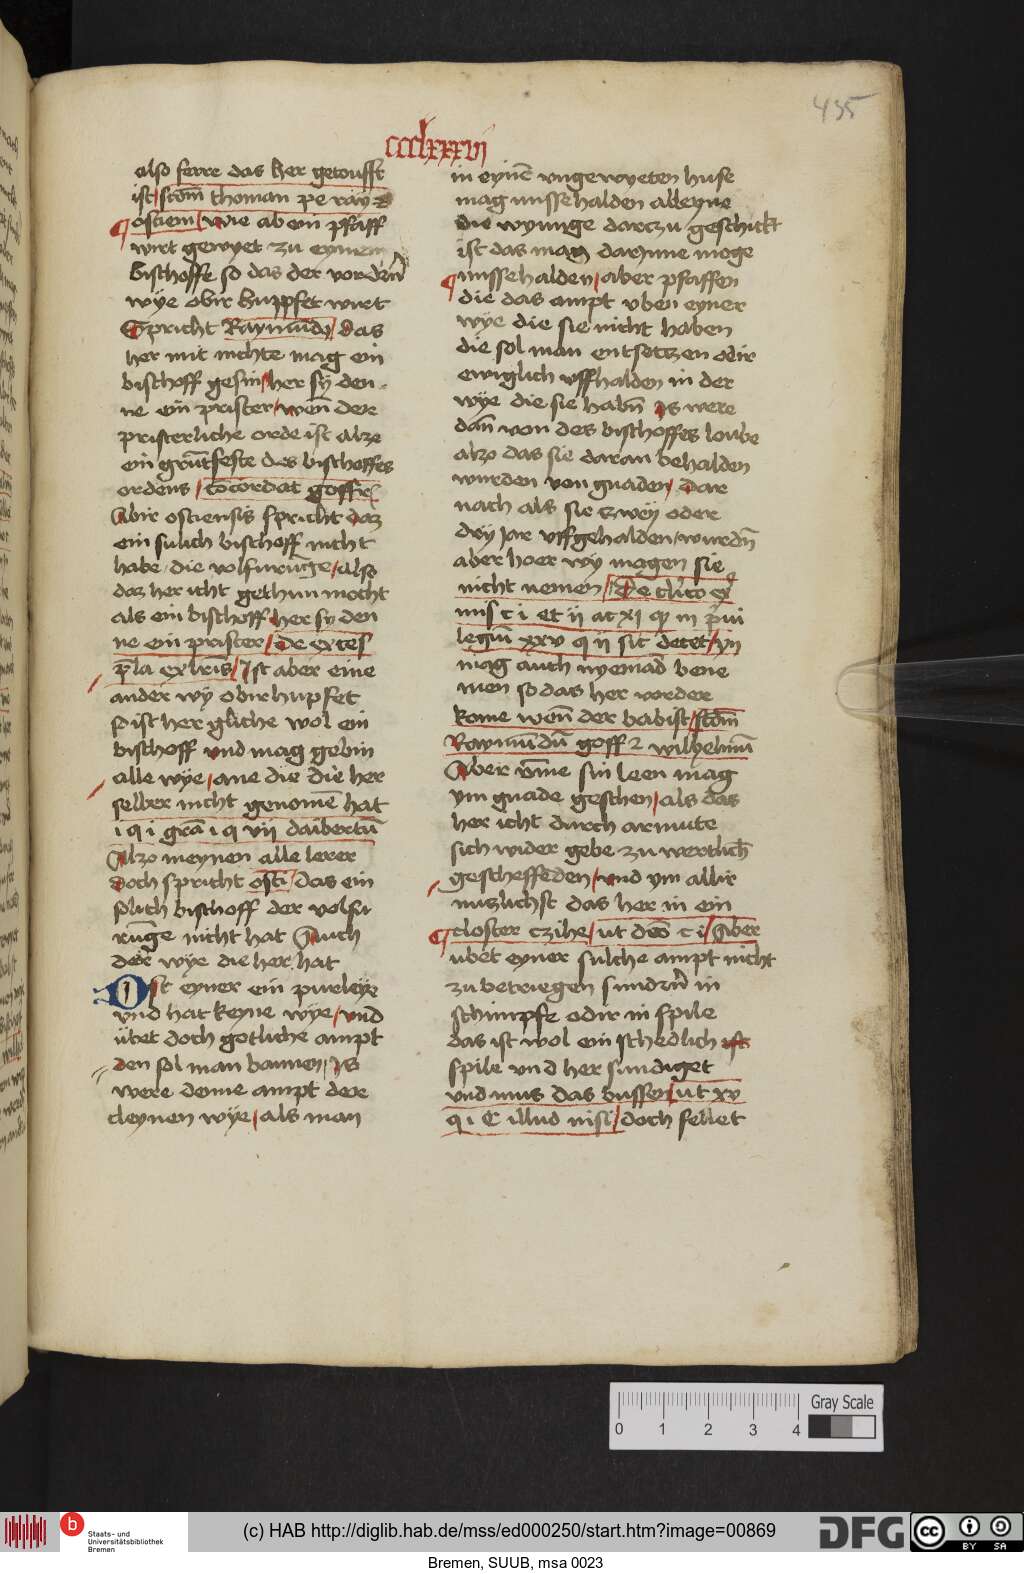 435
ccclxxxvi
also ferre das her getoufft
ist / scdm thoman pe ray z
ostiem / wie ab ein pfaff
wirt gewyet zu eynem
bischoffe so das der vorder
wye obir huppfet wirt
Spricht Raymudo / das
her mit nichte mag ein
bischoff gesin / her sy den
ne ein prister / wen dere
pristerliche orde ist alze
ein gruntfeste des bischoffes
ordens / cocordat goffr
Abir ostiensis spricht daz
ein sulich bischoff nicht
habe die volfurunge / also
daz her icht gethun mocht
als ein bischoff her sy den
ne ein prister / De exces
pla ex libris / Ist aber eine
ander wy obir hupfet
so ist her gliche wol ein
bischoff und mag gebin
alle wye / ane die die her
selber nicht genomen hat
i q i gra i q vii daibertu
Alzo meynen alle lerer
doch spricht osti / das ein
solich bischoff der volfu
runge nicht hat Auch
der wye die her hat
Ist eyner ein pureleye
vnd hat keyne wye / vnd
ubet doch gotliche ampt
den sol man bannen / Is
were denne ampt dere
cleynen wye / als man
in eyne ungewyeten huse
mag missehalden alleyne
die wyunge darczu geschickt
ist das man darynne moge
missehalden / aber pfaffen
die das ampt vben eyner
wye die sie nicht haben
die sol man entsetczen odir
ewiglich uffhalden in der
wye die sie habn Is were
dan von des bischoffes loube
alzo das sie daran behalden
wurden von gnaden / Dar
nach als sie zwey oder
dry Jar uffgehalden wurdn
aber hoer wy magen sie
nicht nemen / De clico ex
mis c i et ii ac xi q in pui
legiu xxv q ii sit decet / yn
mag auch nyemad bene
men so das her vorder
kome wen der babist / scdm
Raymundu goff z wilhelmu
Aber vme sin leen mag
ym gnade geschen / als das
her icht durch armute
sich wider gebe zu wertlich
gescheffeden / und ym allir
nuzlichst das her in ein
closter czihe / ut deo c i / Aber
ubet eyner sulche ampt nicht
zu betriegen sundern in
schimpfe odir in spile
das ist wol ein schedlich ist
spile und her sundiget
vnd mus das bussen / ut xv
q i C illud nisi / doch fellet
0 1 2 3 4
Gray Scale
b Staats- und
Universitätsbibliothek
Bremen
(c) HAB http://diglib.hab.de/mss/ed000250/start.htm?image=00869
DFG
cc BY SA
Bremen, SUUB, msa 0023